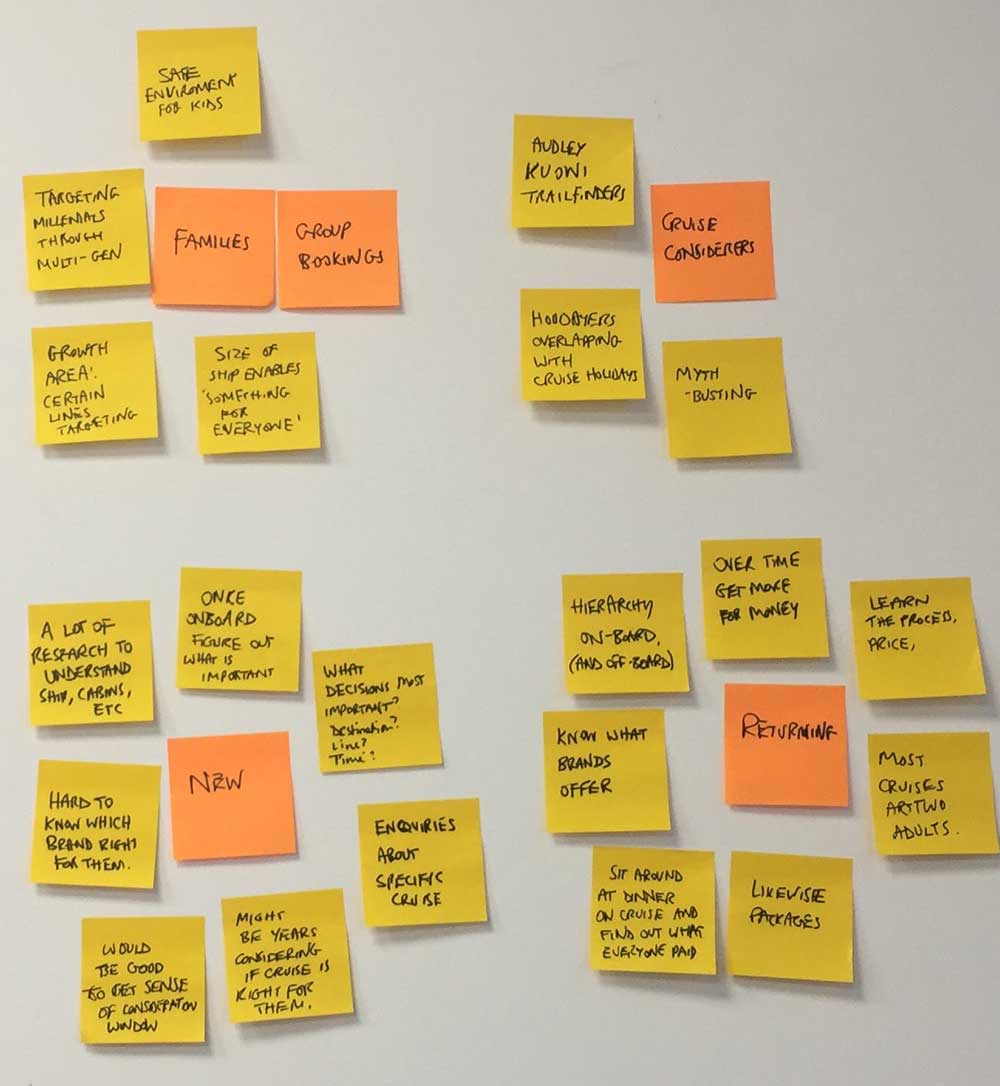 SAFE
ENVIROMENT
FOR KIDS
TARGETING
MILLENIALS
THROUGH
MULTI-GEN
FAMILIES
GROUP
BOOKINGS
GROWTH
AREA'.
CERTAIN
LINES
TARGETING
SIZE OF
SHIP ENABLES
'SOMETHING
FOR
EVERYONE'
AUDLEY
KUONI
TRAILFINDERS
CRUISE
CONSIDERERS
OVERLAPPING
WITH
CRUISE HOLIDAYS
MYTH
-BUSTING
A LOT OF
RESEARCH TO
UNDERSTAND
SHIP, CABINS,
ETC
ONCE
ONBOARD
FIGURE OUT
WHAT IS
IMPORTANT
WHAT
DECISIONS MOST
IMPORTANT?
Destination?
Line?
Time?
NEW
HARD TO
KNOW WHICH
BRAND RIGHT
FOR THEM.
ENQUIRIES
ABOUT
SPECIFIC
CRUISE
WOULD
BE GOOD
TO GET SENSE
OF CONSIDERATION
WINDOW
MIGHT
BE YEARS
CONSIDERING
IF CRUISE IS
RIGHT FOR
THEM.
HIERARCHY
ON-BOARD,
(AND OFF-BOARD)
OVER TIME
GET MORE
FOR MONEY
LEARN
THE PROCESS,
PRICE,
KNOW WHAT
BRANDS
OFFER
RETURNING
MOST
CRUISES
TWO
ADULTS.
SIT AROUND
AT DINNER
ON CRUISE AND
FIND OUT WHAT
EVERYONE PAID
LIKEWISE
PACKAGES